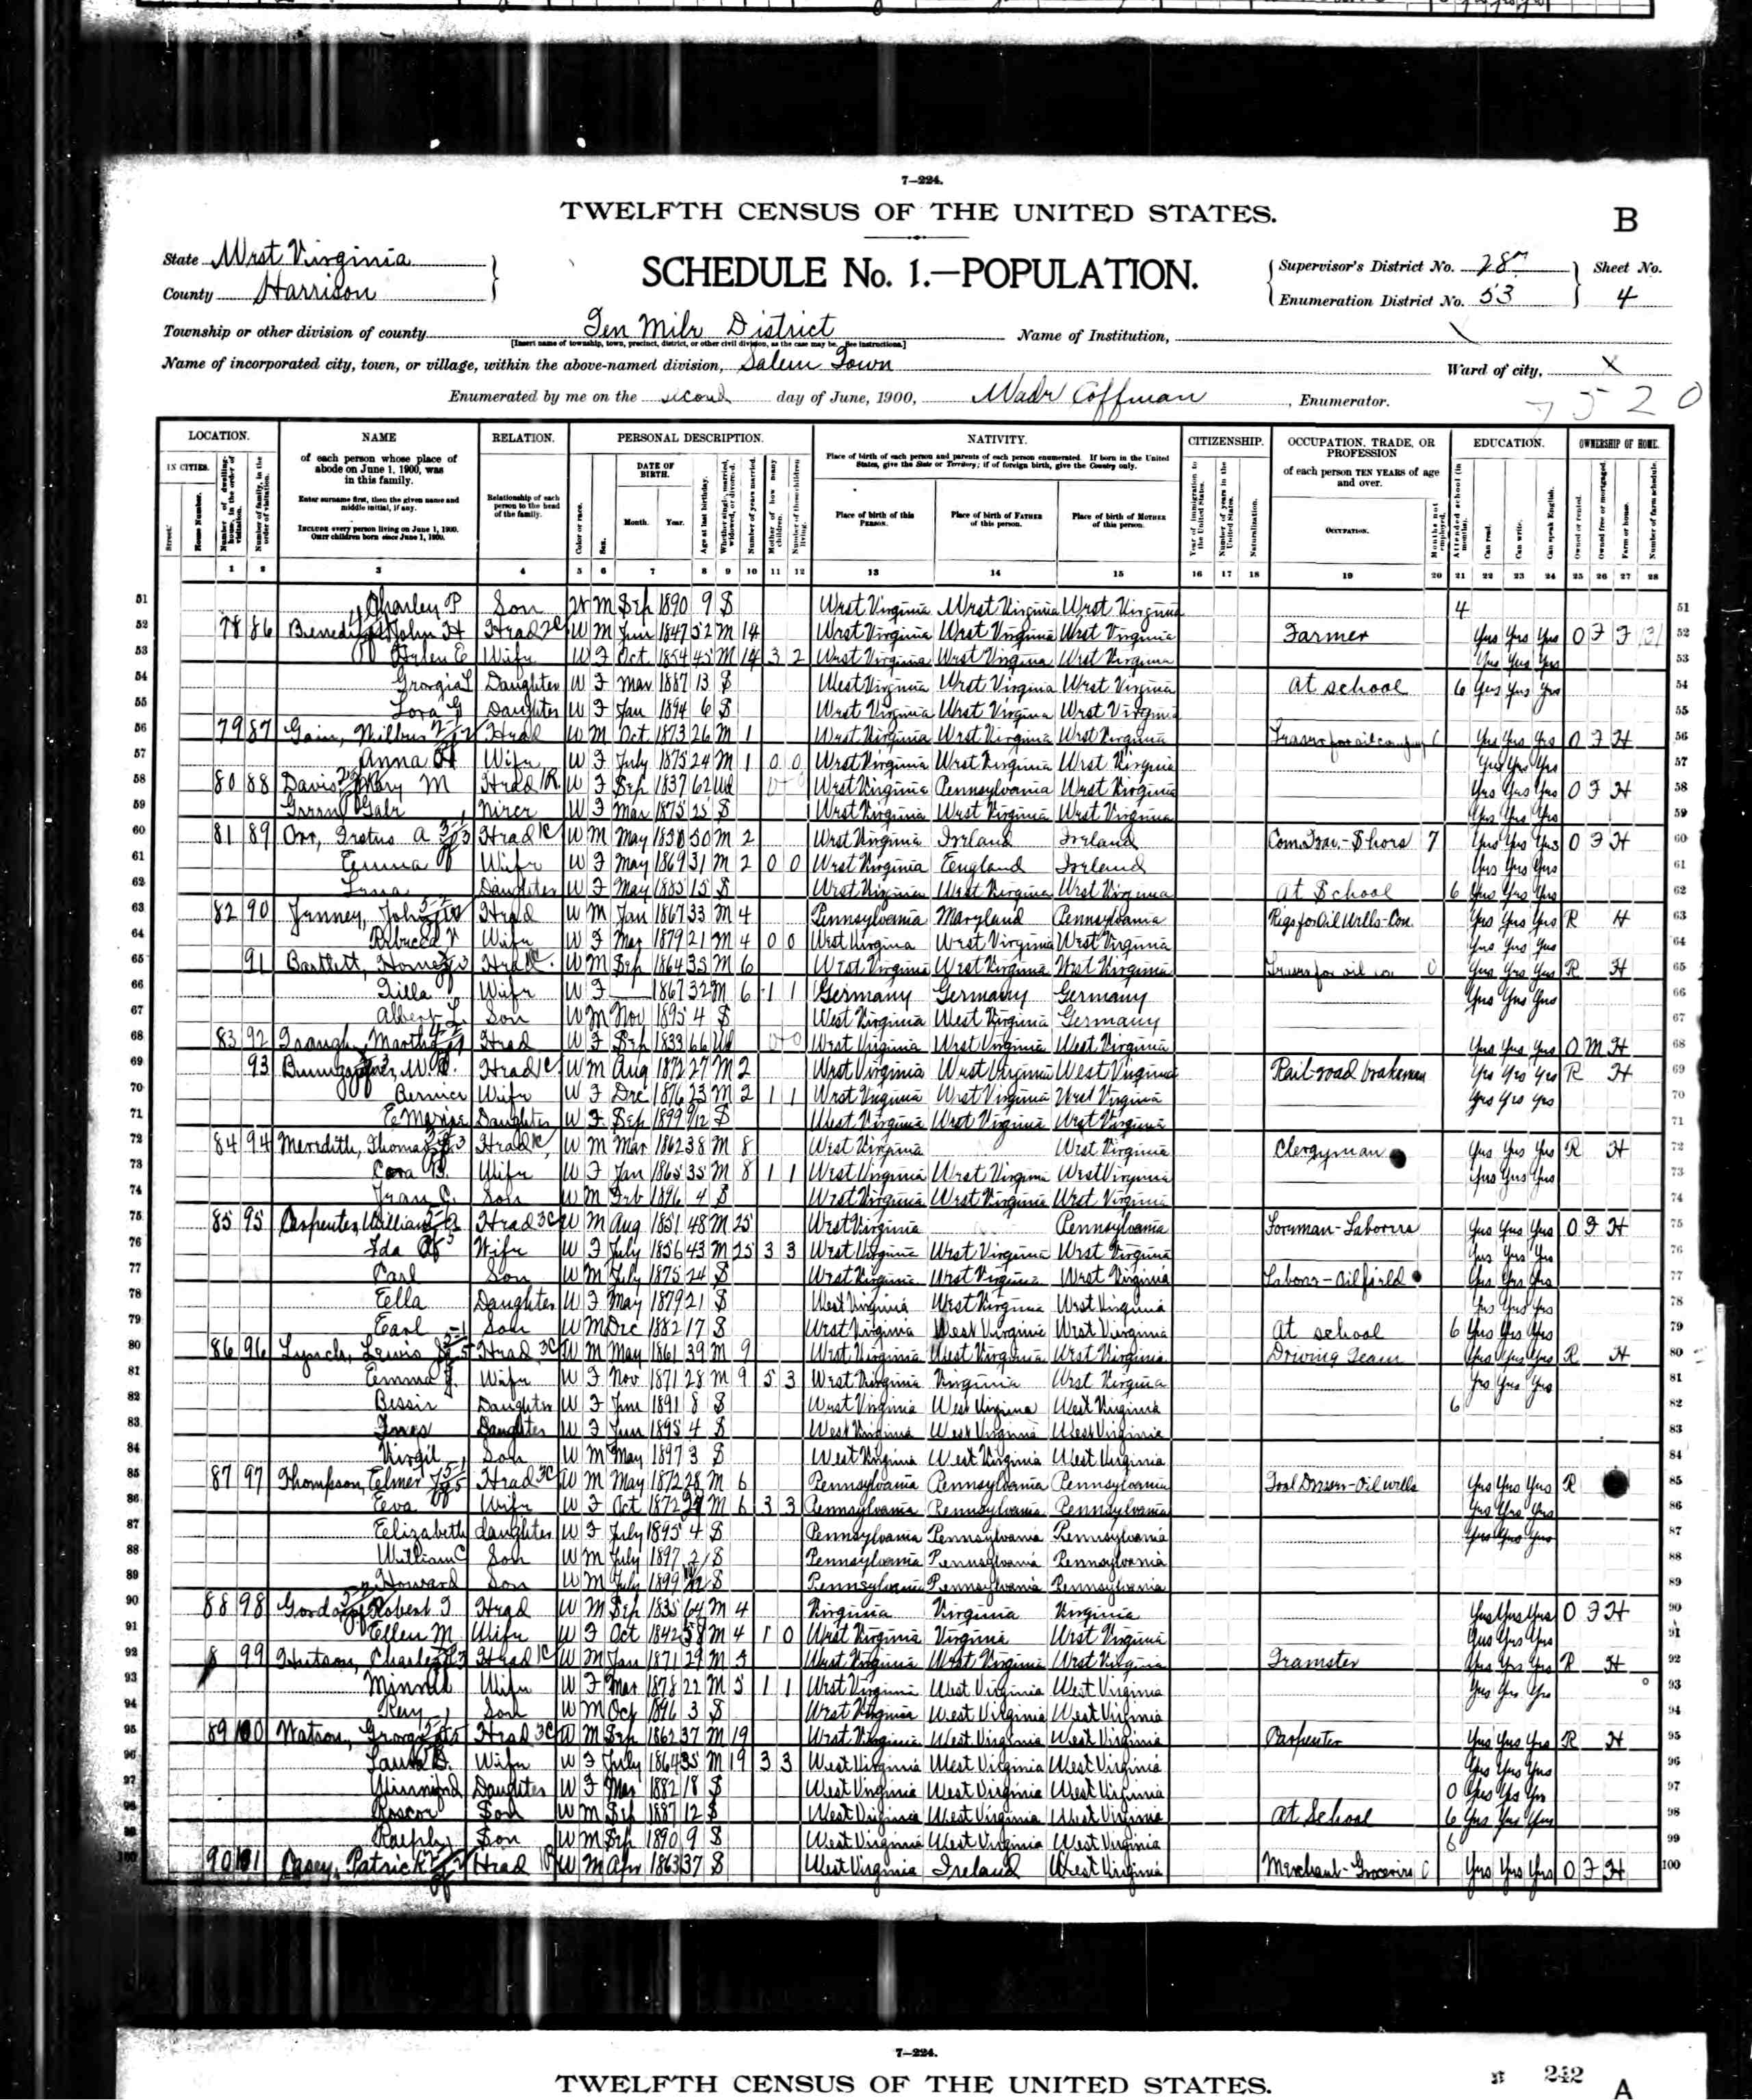 7—224.
TWELFTH CENSUS OF THE UNITED STATES.
B
State West Virginia
County Harrison
SCHEDULE No. 1.—POPULATION.
Supervisor's District No. 28
Enumeration District No. 53
Sheet No.
4
Township or other division of county Ten Mile District
[Insert name of township, town, precinct, district, or other civil division, as the case may be. See instructions.]
Name of Institution, X
Name of incorporated city, town, or village, within the above-named division, Salem Town
Ward of city, X
Enumerated by me on the second day of June, 1900, Wade Coffman, Enumerator.
7520
LOCATION. NAME RELATION. PERSONAL DESCRIPTION. NATIVITY. CITIZENSHIP. OCCUPATION, TRADE, OR PROFESSION EDUCATION. OWNERSHIP OF HOME.
IN CITIES. of each person whose place of abode on June 1, 1900, was in this family.
Enter surname first, then the given name and middle initial, if any.
INCLUDE every person living on June 1, 1900. OMIT children born since June 1, 1900.
Relationship of each person to the head of the family.
DATE OF BIRTH.
Month. Year.
Place of birth of each person and parents of each person enumerated. If born in the United States, give the State or Territory; if of foreign birth, give the Country only.
Place of birth of this PERSON. Place of birth of FATHER of this person. Place of birth of MOTHER of this person.
of each person TEN YEARS of age and over.
OCCUPATION.
1 2 3 4 5 6 7 8 9 10 11 12 13 14 15 16 17 18 19 20 21 22 23 24 25 26 27 28
51 Charley P Son W M Sep 1890 9 S West Virginia West Virginia West Virginia 4 51
52 78 86 John H Head W M Jun 1847 52 M 14 West Virginia West Virginia West Virginia Farmer Yes Yes Yes O F F 52
53 Helen E Wife W F Oct 1854 45 M 14 3 2 West Virginia West Virginia West Virginia Yes Yes Yes 53
54 Georgia L Daughter W F Mar 1887 13 S West Virginia West Virginia West Virginia At school 6 Yes Yes Yes 54
55 Lora G Daughter W F Jan 1894 6 S West Virginia West Virginia West Virginia 55
56 79 87 Gain, Wilbur Head W M Oct 1873 26 M 1 West Virginia West Virginia West Virginia Yes Yes Yes O F H 56
57 Anna Wife W F July 1875 24 M 1 0 0 West Virginia West Virginia West Virginia Yes Yes Yes 57
58 80 88 Davis Mary M Head W F Sep 1837 62 Wd West Virginia Pennsylvania West Virginia Yes Yes Yes O F H 58
59 Niece W F Mar 1875 25 S West Virginia West Virginia West Virginia Yes Yes Yes 59
60 81 89 Orr, A Head W M May 50 M 2 West Virginia Ireland Ireland 7 Yes Yes Yes O F H 60
61 Emma Wife W F May 1869 31 M 2 0 0 West Virginia England Ireland Yes Yes Yes 61
62 Daughter W F May 1885 15 S West Virginia West Virginia West Virginia At School 6 Yes Yes Yes 62
63 82 90 John Head W M Jan 1867 33 M 4 Pennsylvania Maryland Pennsylvania Rigs for Oil Wells-Con. Yes Yes Yes R H 63
64 Rebecca Wife W F Mar 1879 21 M 4 0 0 West Virginia West Virginia West Virginia Yes Yes Yes 64
65 91 Bartlett, Homer Head W M Sep 1864 35 M 6 West Virginia West Virginia West Virginia 0 Yes Yes Yes R H 65
66 Tilla Wife W F 1867 32 M 6 1 1 Germany Germany Germany Yes Yes Yes 66
67 Albert L. Son W M Nov 1895 4 S West Virginia West Virginia Germany 67
68 83 92 Martha Head W F Sep 1833 66 Wd West Virginia West Virginia West Virginia Yes Yes Yes O M H 68
69 93 Head W M Aug 1872 27 M 2 West Virginia West Virginia West Virginia Rail-road brakeman Yes Yes Yes R H 69
70 Bernice Wife W F Dec 1876 23 M 2 1 1 West Virginia West Virginia West Virginia Yes Yes Yes 70
71 Daughter W F Sep 1899 9/12 S West Virginia West Virginia West Virginia 71
72 84 94 Meredith, Thomas Head W M Mar 1862 38 M 8 West Virginia West Virginia Clergyman Yes Yes Yes R H 72
73 Cora B. Wife W F Jan 1865 35 M 8 1 1 West Virginia West Virginia West Virginia Yes Yes Yes 73
74 Son W M Feb 1896 4 S West Virginia West Virginia West Virginia 74
75 85 95 Carpenter, William Head W M Aug 1851 48 M 25 West Virginia Pennsylvania Forman-Laborers Yes Yes Yes O F H 75
76 Ida Wife W F July 1856 43 M 25 3 3 West Virginia West Virginia West Virginia Yes Yes Yes 76
77 Carl Son W M July 1875 24 S West Virginia West Virginia West Virginia Labor-Oilfield Yes Yes Yes 77
78 Ella Daughter W F May 1879 21 S West Virginia West Virginia West Virginia Yes Yes Yes 78
79 Earl Son W M Dec 1882 17 S West Virginia West Virginia West Virginia At school 6 Yes Yes Yes 79
80 86 96 Lynch, Lewis Head W M May 1861 39 M 9 West Virginia West Virginia West Virginia Driving Team Yes Yes Yes R H 80
81 Emma J. Wife W F Nov 1871 28 M 9 5 3 West Virginia Virginia West Virginia Yes Yes Yes 81
82 Bessie Daughter W F June 1891 8 S West Virginia West Virginia West Virginia 6 82
83 Inez Daughter W F Jun 1895 4 S West Virginia West Virginia West Virginia 83
84 Virgil Son W M May 1897 3 S West Virginia West Virginia West Virginia 84
85 87 97 Thompson, Elmer Head W M May 1872 28 M 6 Pennsylvania Pennsylvania Pennsylvania Tool Dresser-Oil wells Yes Yes Yes R 85
86 Eva Wife W F Oct 1872 M 6 3 3 Pennsylvania Pennsylvania Pennsylvania Yes Yes Yes 86
87 Elizabeth Daughter W F July 1895 4 S Pennsylvania Pennsylvania Pennsylvania Yes Yes Yes 87
88 William C Son W M July 1897 2 S Pennsylvania Pennsylvania Pennsylvania 88
89 Howard Son W M July 1899 S Pennsylvania Pennsylvania Pennsylvania 89
90 88 98 Gordon, Robert Head W M Sep 1835 64 M 4 Virginia Virginia Virginia Yes Yes Yes O F H 90
91 Ellen M. Wife W F Oct 1842 M 4 1 0 West Virginia Virginia West Virginia Yes Yes Yes 91
92 99 Hutson, Charles Head W M Jan 1871 29 M 5 West Virginia West Virginia West Virginia Teamster Yes Yes Yes R H 92
93 Minnie Wife W F Mar 1878 22 M 5 1 1 West Virginia West Virginia West Virginia Yes Yes Yes 93
94 Son W M Oct 1896 3 S West Virginia West Virginia West Virginia 94
95 89 100 Watson, George Head W M Sep 1862 37 M 19 West Virginia West Virginia West Virginia Carpenter Yes Yes Yes R H 95
96 Laura B. Wife W F July 1864 35 M 19 3 3 West Virginia West Virginia West Virginia Yes Yes Yes 96
97 Daughter W F Mar 1882 18 S West Virginia West Virginia West Virginia 0 Yes Yes Yes 97
98 Roscoe Son W M Sep 1887 12 S West Virginia West Virginia West Virginia At School 6 Yes Yes Yes 98
99 Son W M Sep 1890 9 S West Virginia West Virginia West Virginia 6 99
100 90 101 Casey, Patrick Head W M Apr 1863 37 S West Virginia Ireland West Virginia Merchant-Groceries 0 Yes Yes Yes O F H 100
7—224.
TWELFTH CENSUS OF THE UNITED STATES.
242
A